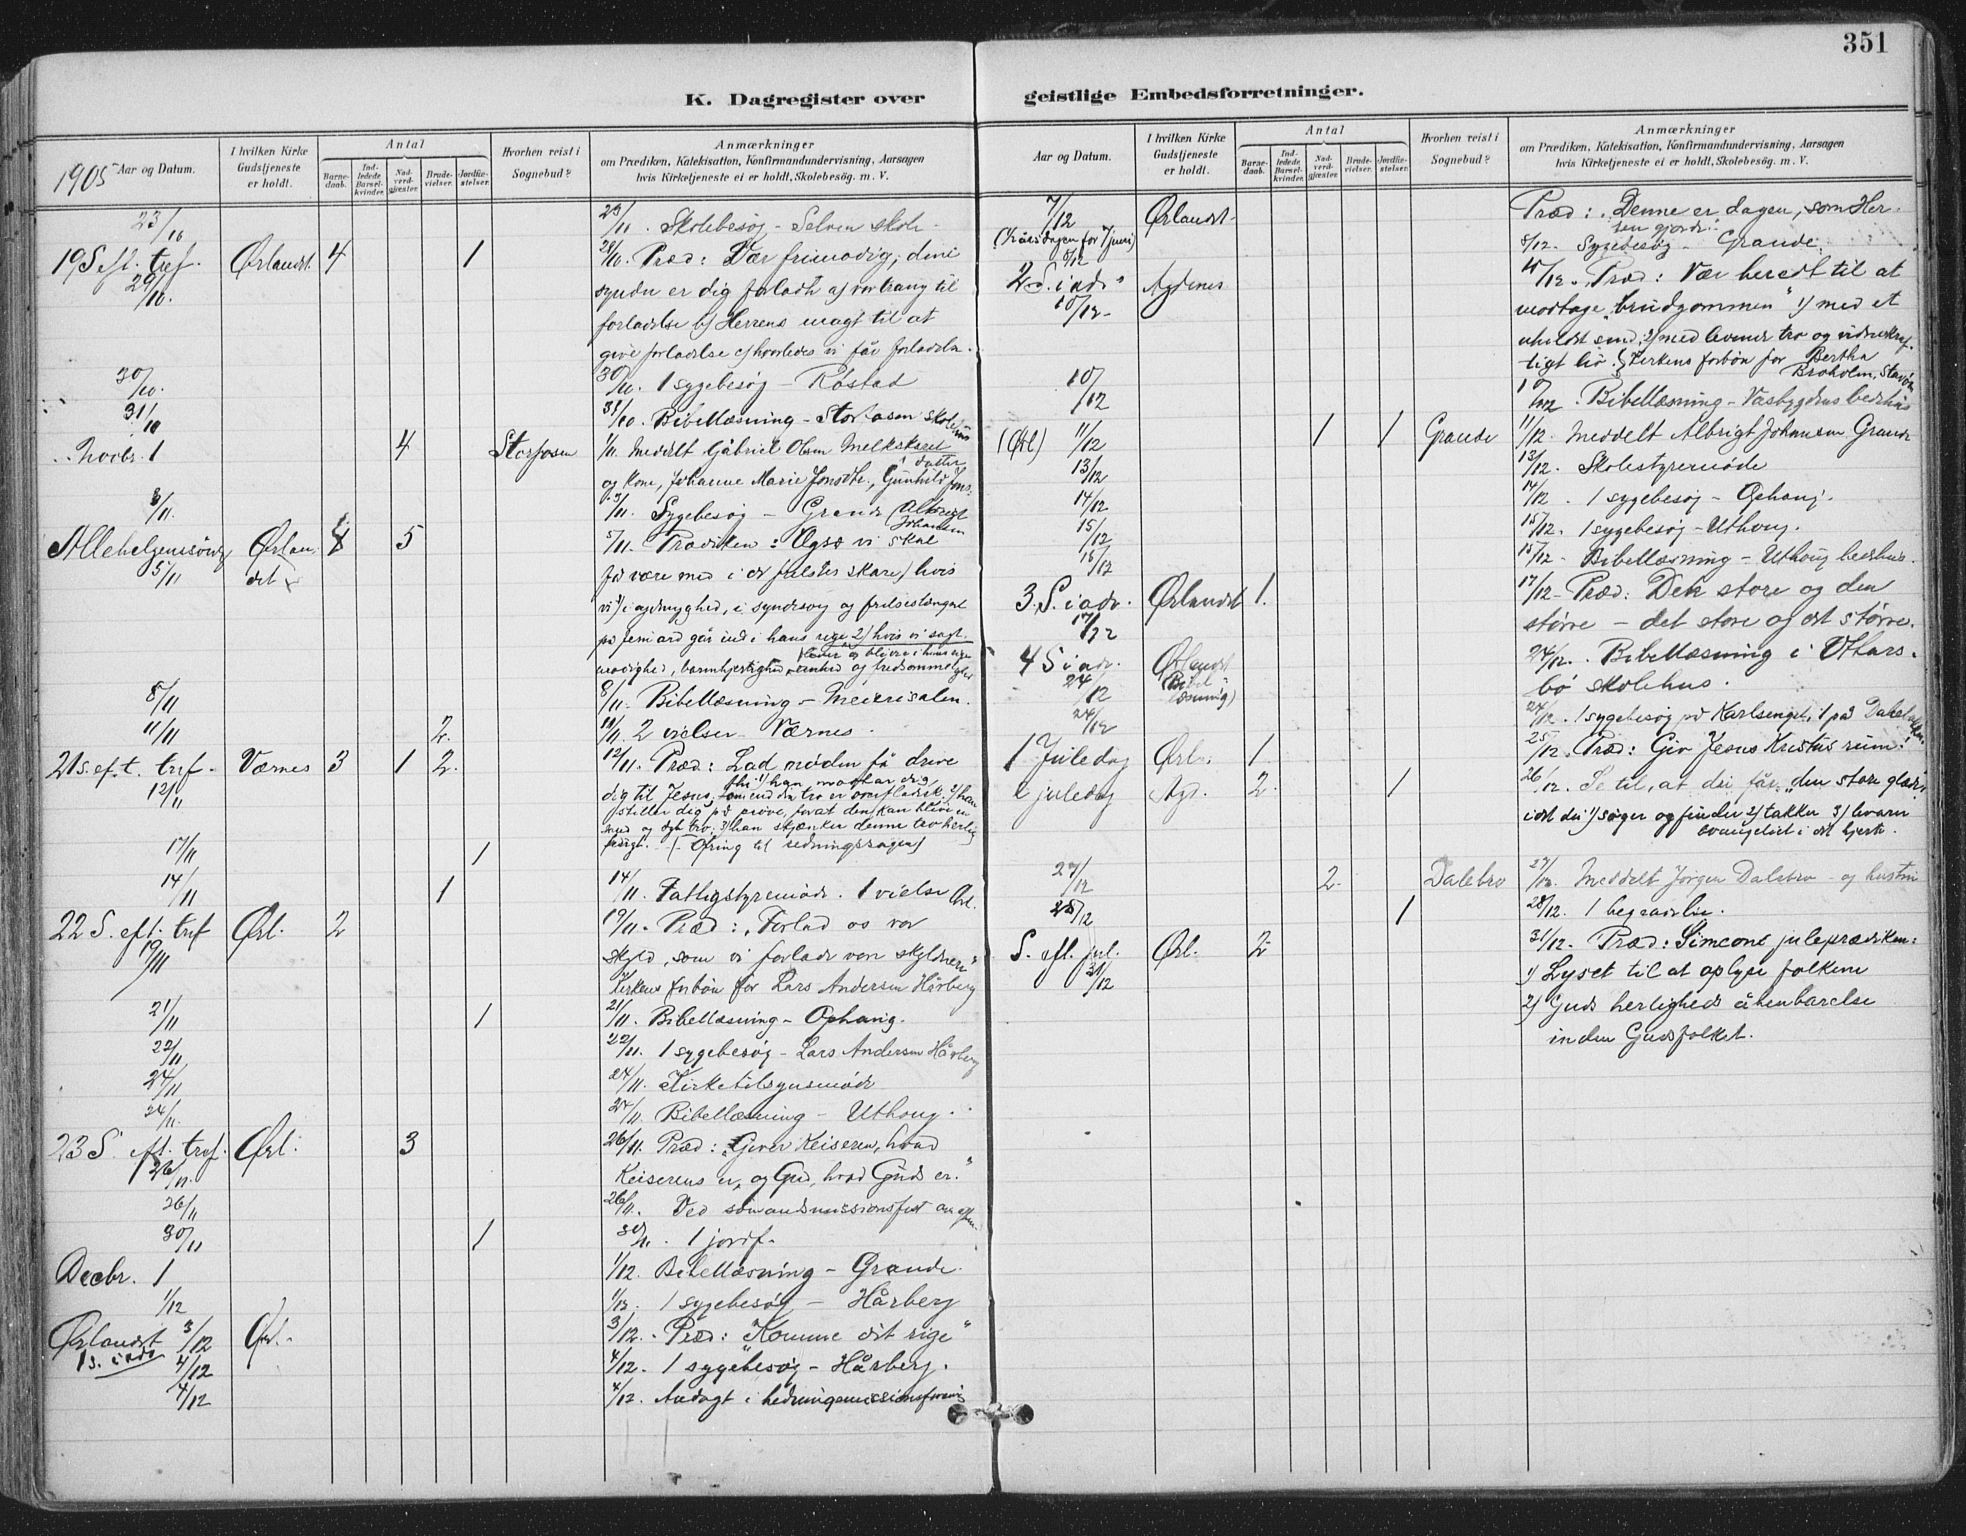 351
K. Dagregister over
geistlige Embedsforretninger.
1905 Aar og Datum.
I hvilken Kirke Gudstjeneste er holdt.
Antal
Barnedaab.
Indledede Barselkvinder.
Nadverdgjæster.
Brudevielser.
Jordfæstelser.
Hvorhen reist i Sognebud?
Anmærkninger
om Prædiken, Katekisation, Konfirmandundervisning, Aarsagen
hvis Kirketjeneste ei er holdt, Skolebesøg. m. V.
23/10 Skolebesøg - Selven skole.
19 S. eft. tref. Ørlandet. 4 1 Præd: Vær frimodig, dine
29/10. synder er dig forladte a) vor trang til
forladelse b) Herrens magt til at
give forladelse c) hvorledes vi får forladelse.
30/10. 30/10. 1 sygebesøg - Røstad
31/10 31/10. Bibellæsning - Storfosen skolehus
Novbr. 1 4 Storfosen 1/11. Meddelt Gabriel Olsen Melkskaret
og kone, Johanne Marie Jonsdtr., datter Gunhild Jons.
3/11. 3/11. Sygebesøg - Grande (Albrigt Johansen
Allehelgenssøndg Ørlandet 5 5/11. Prædiken: Også vi skal
5/11 få være med i de frelstes skare) hvis
vi 1) i ydmyghed, i syndesorg og frelseslængsel
på jemi ard går ind i hans rige 2) hvis vi sagt
lever og bliver i hans rige
modighed, barmhjertighed, renhed og fredsommelighed
8/11 8/11. Bibellæsning - Meierisalen.
11/11 2. 11/11. 2 vielser - Værnes.
21 s. eft. tref. Værnes 3 1 2. 12/11. Præd: Lad nøden få drive
12/11 thi 1) han modtar dig
dig til Jesus, som end din tro er overfladisk. 2) han
stiller dig på prøve, forat den kan blive en
sand og dyb tro; 3) han skjænker denne tro herlig
seier. (Ofring til redningssagen)
17/11 1
14/11 1 14/11. Fattigstyremøde. 1 vielse Ørl.
22 S. eft. tref Ørl. 2 19/11. Præd: "Forlad os vor
19/11 skyld, som vi forlade vore skyldnere"
Kirkens forbøn for Lars Andersen Hårberg
21/11 1 21/11. Bibellæsning - Ophaug.
22/11 22/11. 1 sygebesøg - Lars Andersen Hårberg
24/11 24/11. Kirketilsynsmøde
24/11. 24/11. Bibellæsning - Uthaug.
23 S. eft. tref. Ørl. 3 26/11. Præd: "Giver Keiseren, hvad
26/11. Keiserens er, og Gud, hvad Guds er."
26/11 26/11. Ved sømandsmissionsfest om aften.
30/11 1 30/11. 1 jordf.
Decbr. 1 1/12. Bibellæsning - Grande.
1/12 1/12. 1 sygebesøg - Hårberg
Ørlandet 3/12 Ørl. 3/12. Præd: "Komme dit rige"
1 s. i adv. 4/12 4/12. 1 sygebesøg - Hårberg.
4/12 4/12. Andagt i hedningemissionsforening
Aar og Datum.
I hvilken Kirke Gudstjeneste er holdt.
Antal
Barnedaab.
Indledede Barselkvinder.
Nadverdgjæster.
Brudevielser.
Jordfæstelser.
Hvorhen reist i Sognebud?
Anmærkninger
om Prædiken, Katekisation, Konfirmandundervisning, Aarsagen
hvis Kirketjeneste ei er holdt, Skolebesøg. m. V.
7/12 Ørlandet Præd: "Denne er dagen, som Herren gjorde."
(Årsdagen for 7 juni)
8/12 8/12. Sygebesøg - Grande.
2 S. i adv. Agdenes 10/12. Præd: Vær beredt til at
10/12 modtage "brudgommen" 1) med et
ubeldt sind, 2) med levende tro og vidnekraftigt liv. Kirkens forbøn for Bertha
Broholm, Stavøen
10/12 10/12. Bibellæsning - Vasbygdens bedehus
(Ørl) 11/12 1 1 Grande 11/12. Meddelt Albrigt Johansen Grande
13/12 13/12. Skolestyremøde
14/12 14/12. 1 sygebesøg - Ophaug.
15/12 15/12. 1 sygebesøg - Uthaug.
15/12 15/12. Bibellæsning - Uthaug bedehus.
3. S. i adv. Ørlandet 1. 17/12. Præd: Den store og den
17/12 større - det store og det større.
4 S i adv. Ørlandet 24/12. Bibellæsning i Ottersbø skolehus.
24/12 (Bibellæsning)
24/12 24/12. 1 sygebesøg på Karlsenget, 1 på
1 Juledag Ørl. 1 25/12. Præd: Giv Jesus Kristus rum!
2 juledag Agd. 2. 1 26/12. Se til, at du får "den store glæde"
idet du 1) søger og finder 2) takker 3) bevarer
evangeliet i dit hjerte.
27/12 2. Dalebro 27/12. Meddelt Jørgen Dalebro - og hustru
28/12 1 28/12. 1 begravelse.
S. eft. jul. Ørl. 2 31/12. Præd: Simeons juleprædiken:
31/12 1) Lyset til at oplyse folkene
2) Guds herligheds åbenbarelse
inden Gudsfolket.